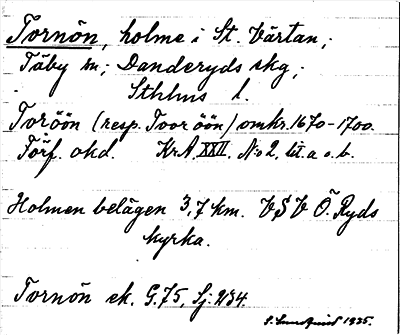 Tornön, holme i St. Värtan,;
Täby sn; Danderyds skg;
Sthlms l.
Toröön (resp. Tooröön) omkr. 1670-1700.
Förf. okd. Kr A. XXII. N:o 2, lit. a o. b.
Holmen belägen 3,7 km. VSV Ö. Ryds
kyrka.
Tornön ek. G. 75, Sj. 234.
S. Lundquist 1925.